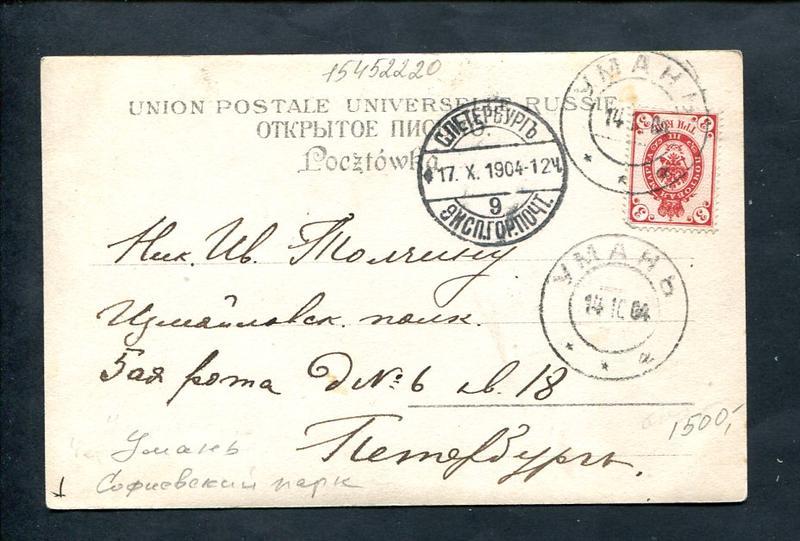 15452220
UNION POSTALE UNIVERSELLE RUSSIE
ОТКРЫТОЕ
Pocztówka
С.ПЕТЕРБУРГЪ
17. X. 1904-12Ч.
9
ЭКСП.ГОР.ПОЧТ.
УМАНЬ
14
3
3
УМАНЬ
14 10 04
Ник. Ив. Толчину
Измайловск. полк.
5ая рота Д № 6 кв. 18
Петербургъ.
1500,-
Умань
Софиевский парк